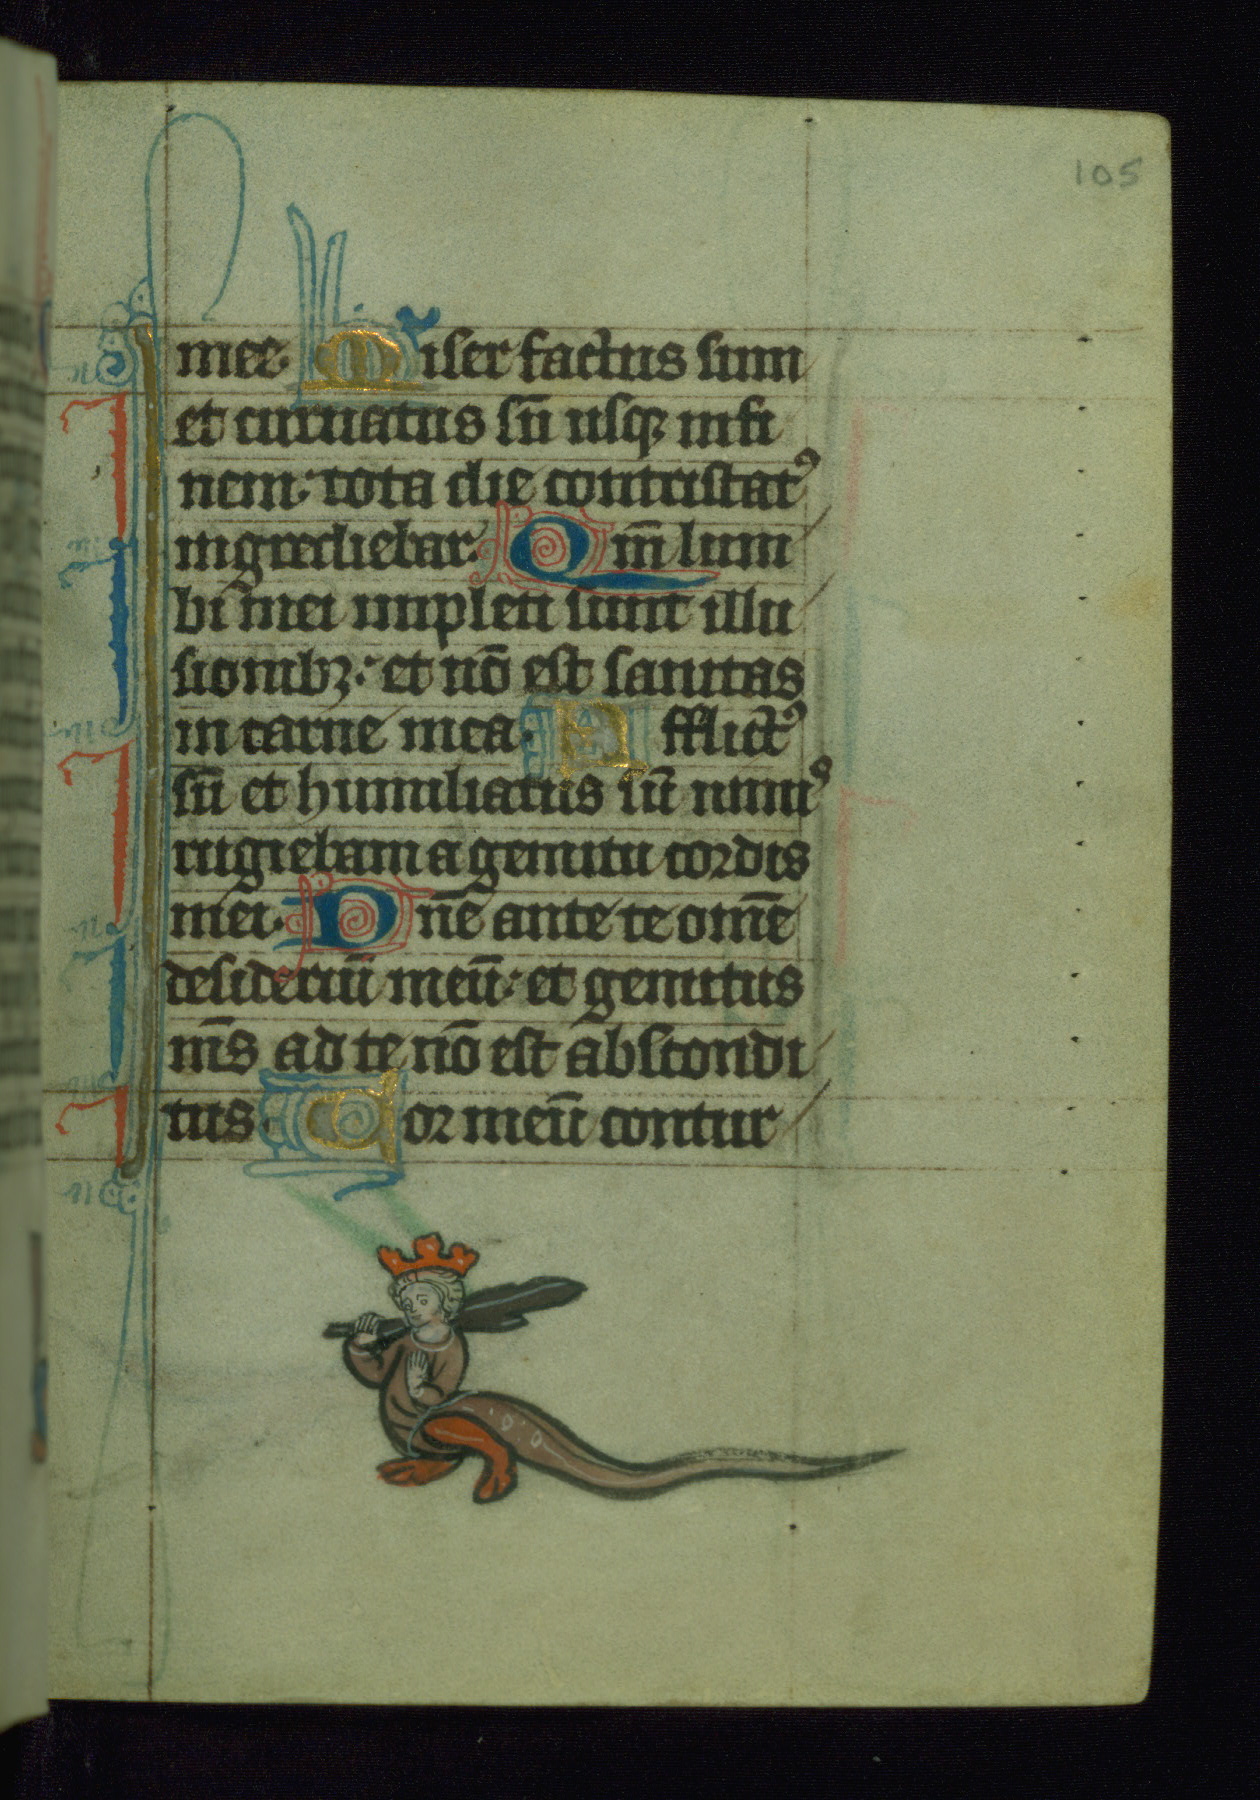 105
mee. Miser factus sum
et curuatus sū usqꝫ in fi
nem: tota die contristatꝰ
ingrediebar. Qm̄ lum
bi mei impleti sunt illu
sionibꝫ: et nō est sanitas
in carne mea. Afflictꝰ
sū et humiliatus sū nimis
rugiebam a gemitu cordis
mei. Dn̄e ante te om̄e
desideriū meū: et gemitus
m̄s ad te nō est abscondi
tus. Cor meū contur